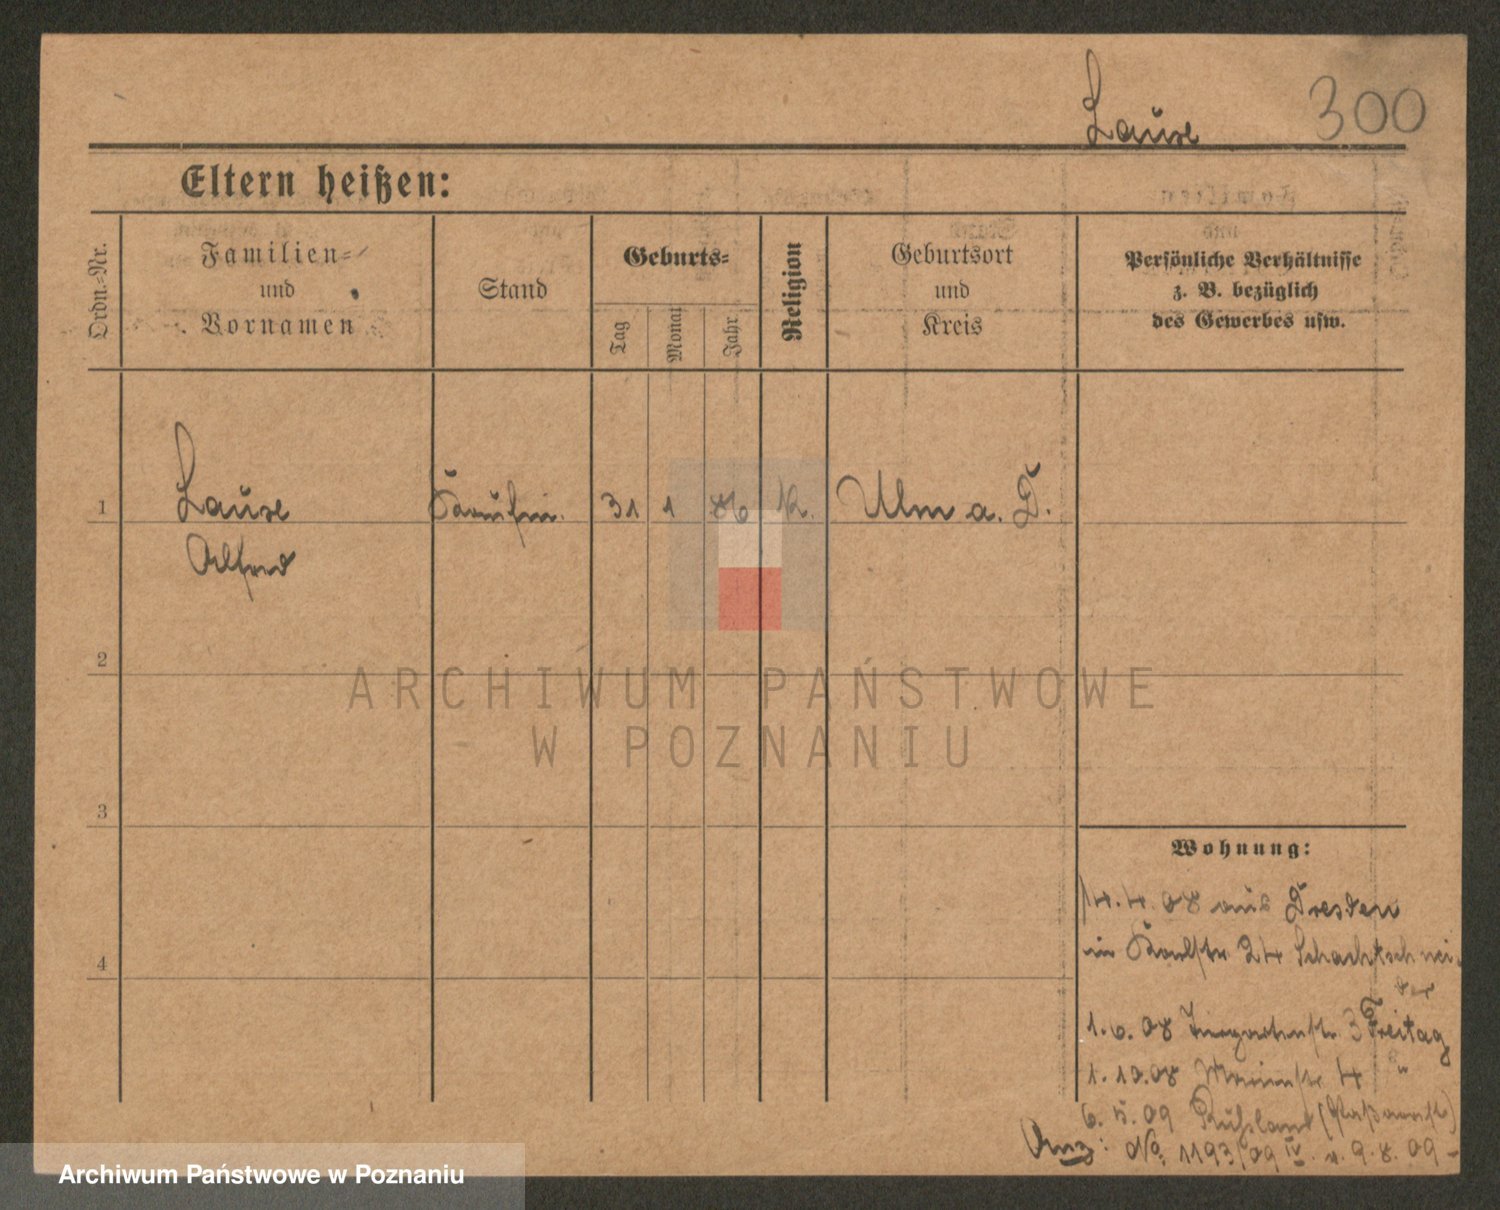 Lause
300
Eltern heißen:
Ordn.-Nr.
Familien-
und
Vornamen
Stand
Geburts-
Tag
Monat
Jahr
Religion
Geburtsort
und
Kreis
Persönliche Verhältnisse
z. B. bezüglich
des Gewerbes usw.
1
Lause
Alfred
Kaufm.
31 1 86
K.
Ulm a. D.
2
ARCHIWUM PAŃSTWOWE
W POZNANIU
3
Wohnung:
14.4.08 aus Dresden
in 24 Schachtschnei-
der
4
1.6.08 Tiergartenstr. 3 Freitag
1.10.08 4 "
6.5.09 Rußland
Anz: No. 1193/09 IV. v. 9.8.09-
Archiwum Państwowe w Poznaniu